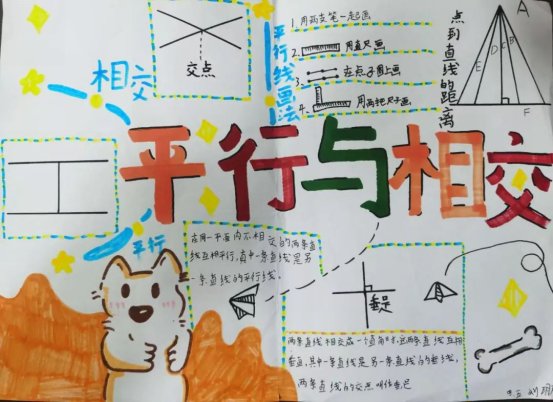 相交
交点
平行线画法
1.用两支笔一起画
2. 用直尺画
3. 在点子图上画
4. 用两把尺子画
点到直线的距离
A
E
D
C
B
F
平行与相交
平行
在同一平面内不相交的两条直
线互相平行,其中一条直线是另
一条直线的平行线。
垂足
两条直线相交成一个直角时,这两条直线互相
垂直,其中一条直线是另一条直线的垂线,
两条直线的交点叫作垂足